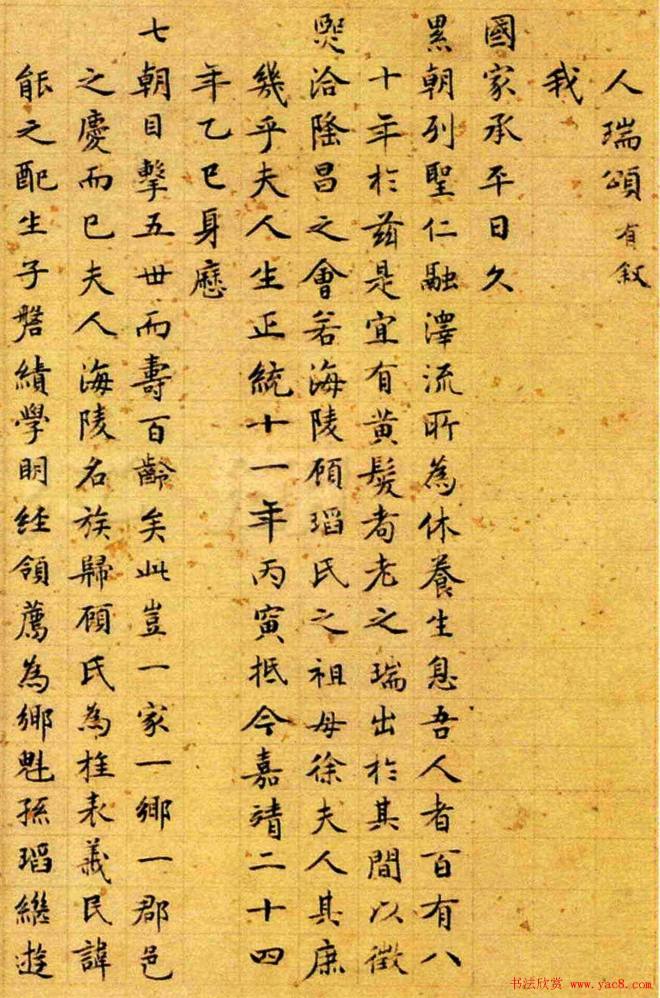 人瑞頌有叙
我
國家承平日久
累朝列聖仁融澤流所為休養生息吾人者百有八
十年於茲是宜有黃髮耇老之瑞出於其間以徵
熙洽隆昌之會若海陵顧瑫氏之祖母徐夫人其庶
幾乎夫人生正統十一年丙寅抵今嘉靖二十四
年乙巳身歷
七朝目擊五世而壽百齡矣此豈一家一鄉一郡邑
之慶而已夫人海陵名族歸顧氏為旌表義民諱
能之配生子磐績學明經領薦為鄉魁孫瑫繼遊
书法欣赏 www.yac8.com